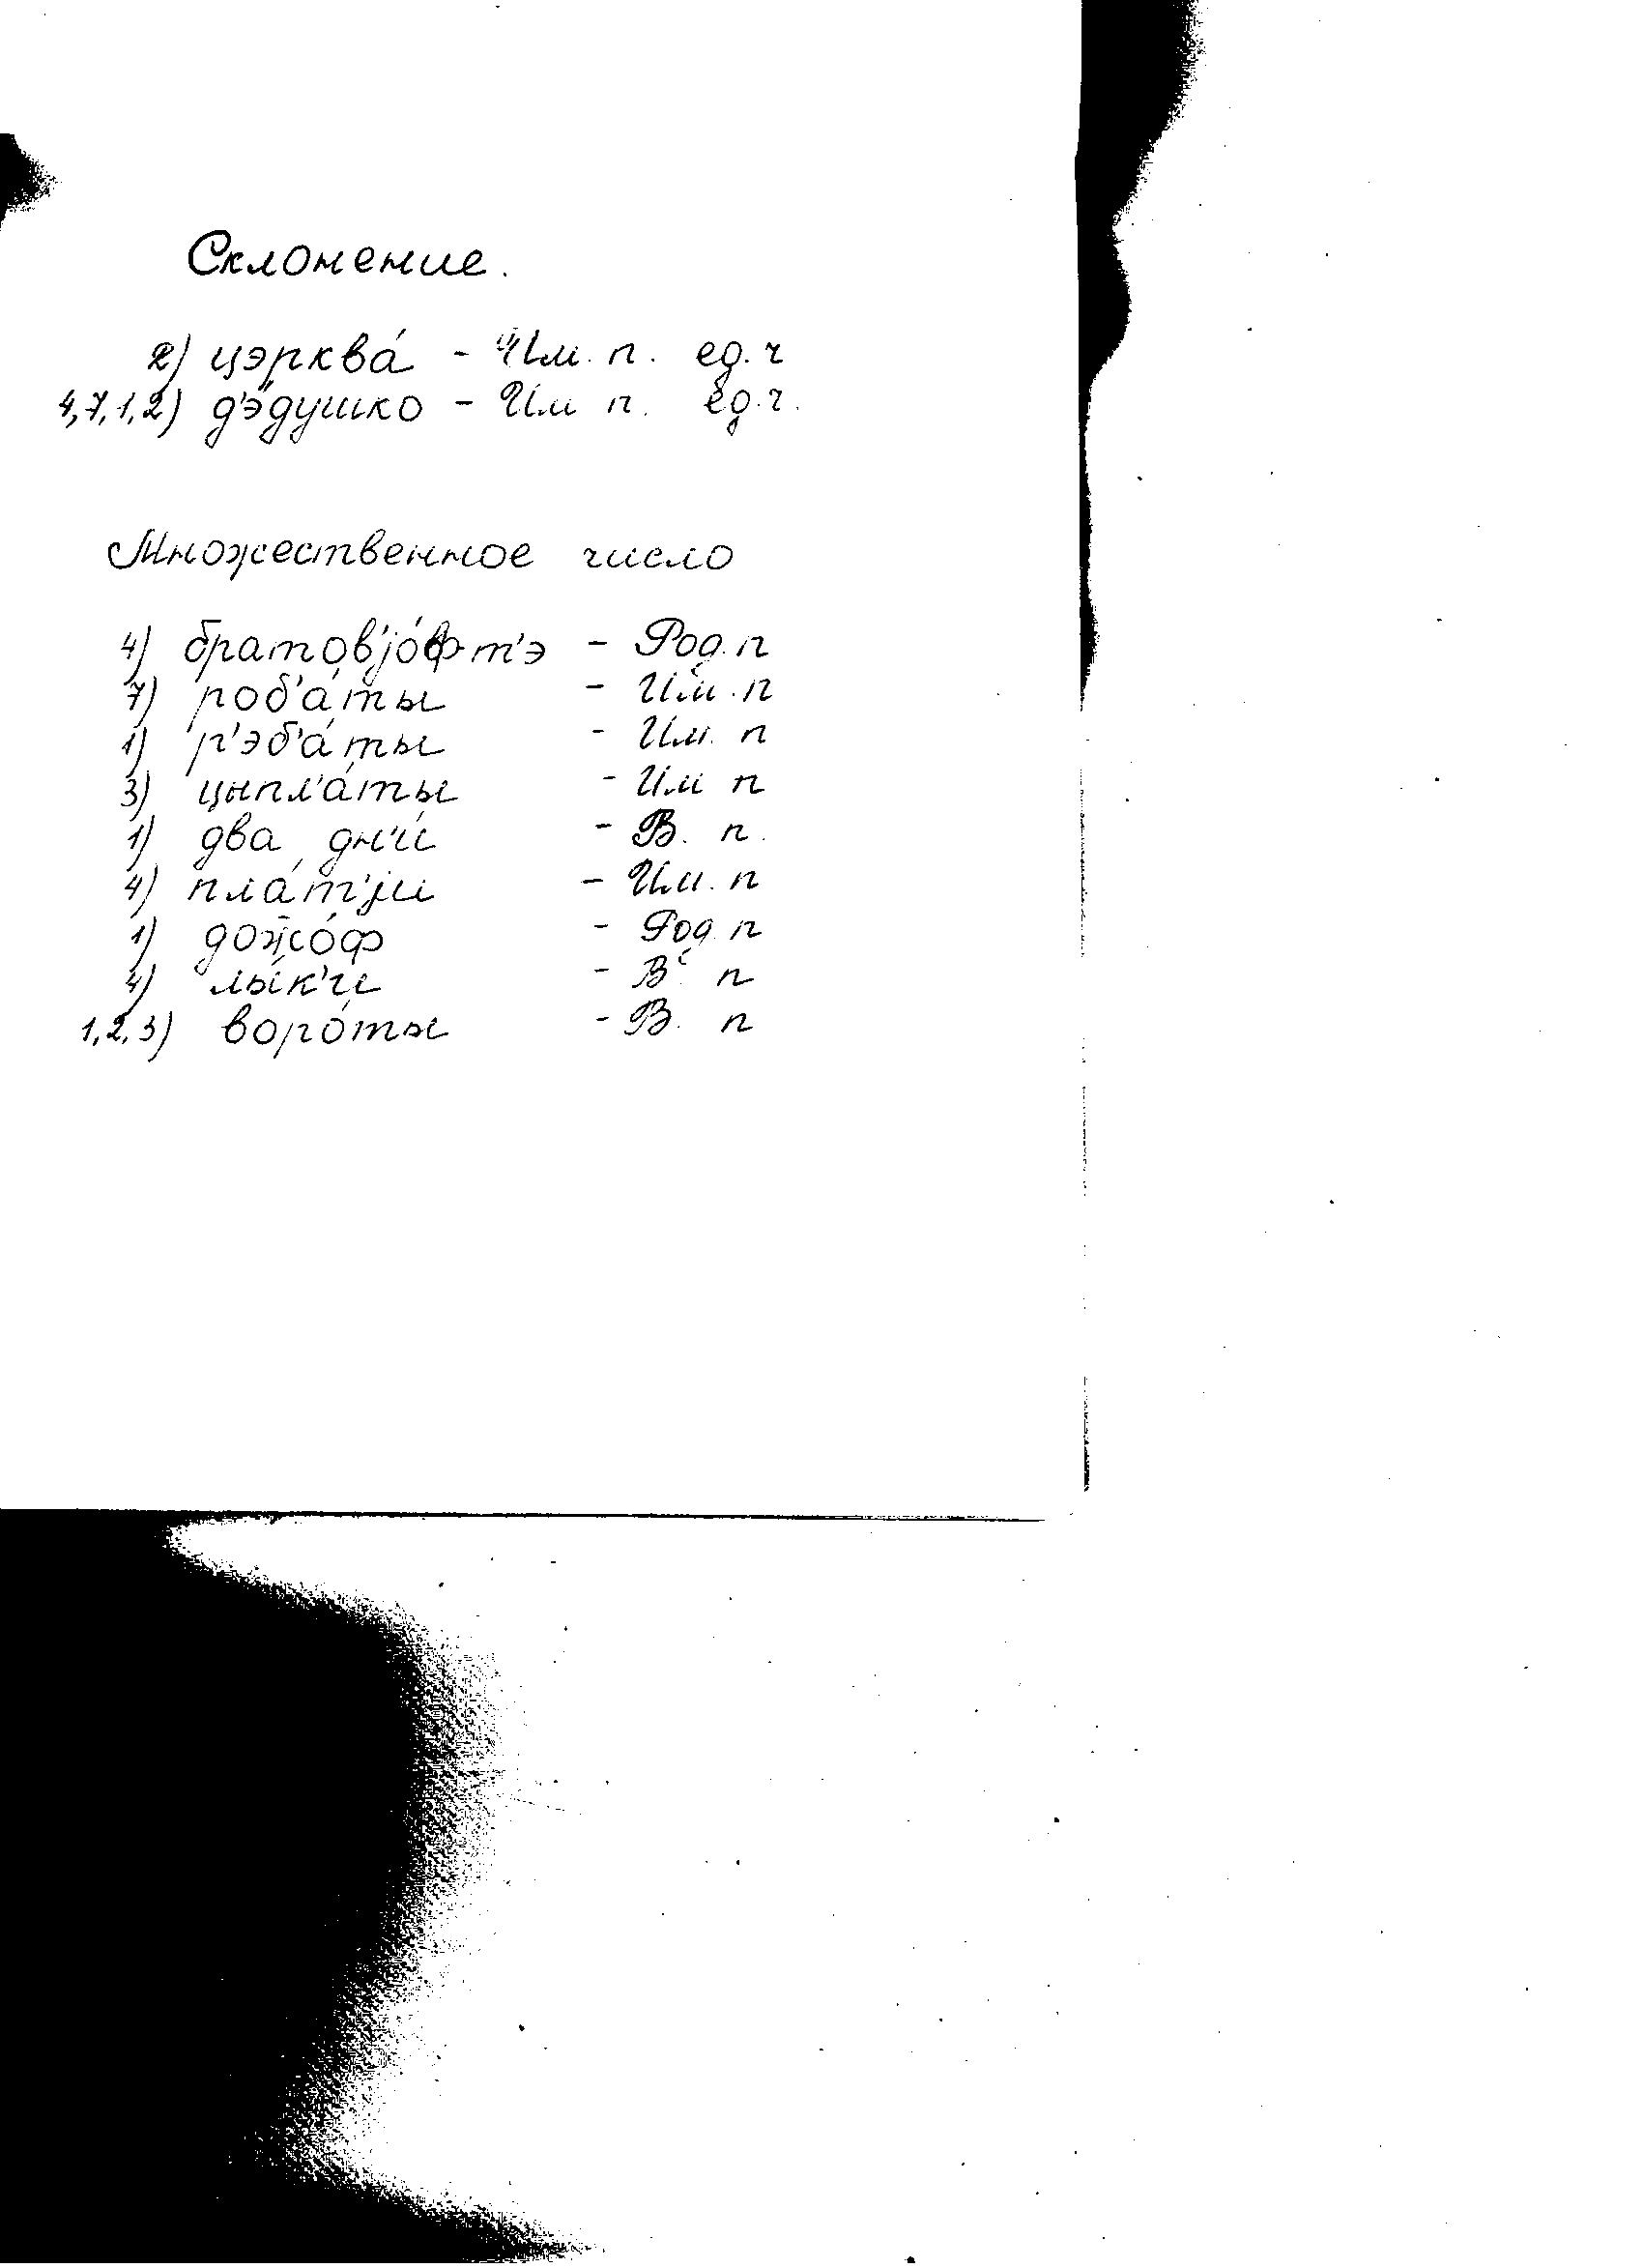 Склонение.
2) цэрквá - Им. п. ед. ч
4, 7, 1, 2) д'э́душко - Им п. ед. ч.
Множественное число
4) братов'jóфт'э - Род. п
7) роб'áты - Им. п
1) р'эб'áты - Им. п
3) цыпл'áты - Им п
1) два дн'и́ - В. п.
4) плáт'jи - Им. п
1) дож̄óф - Род п
4) лы́к'и - В. п
1, 2, 3) ворóты - В. п